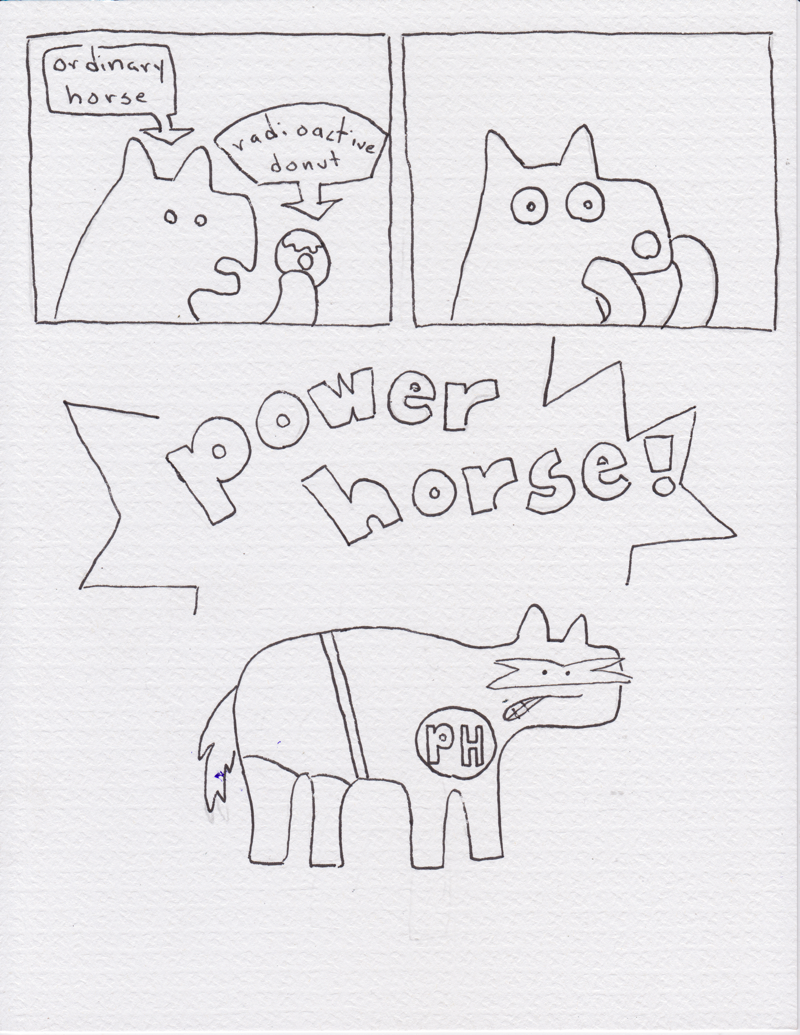 ordinary
horse
radioactive
donut
power
horse!
PH